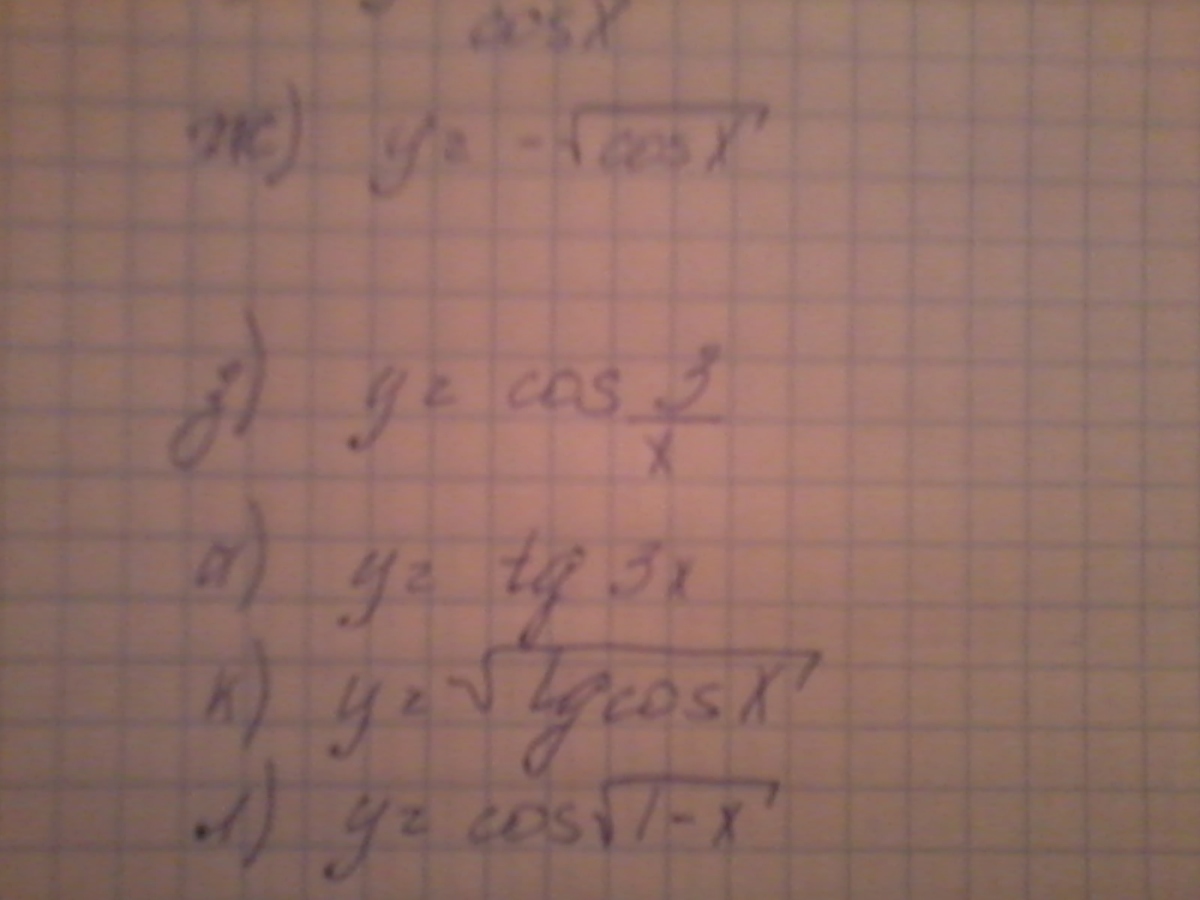 cos x
ж) y = -√cos x
з) y = cos 3/x
и) y = tg 3x
к) y = √lg cos x
л) y = cos√1-x